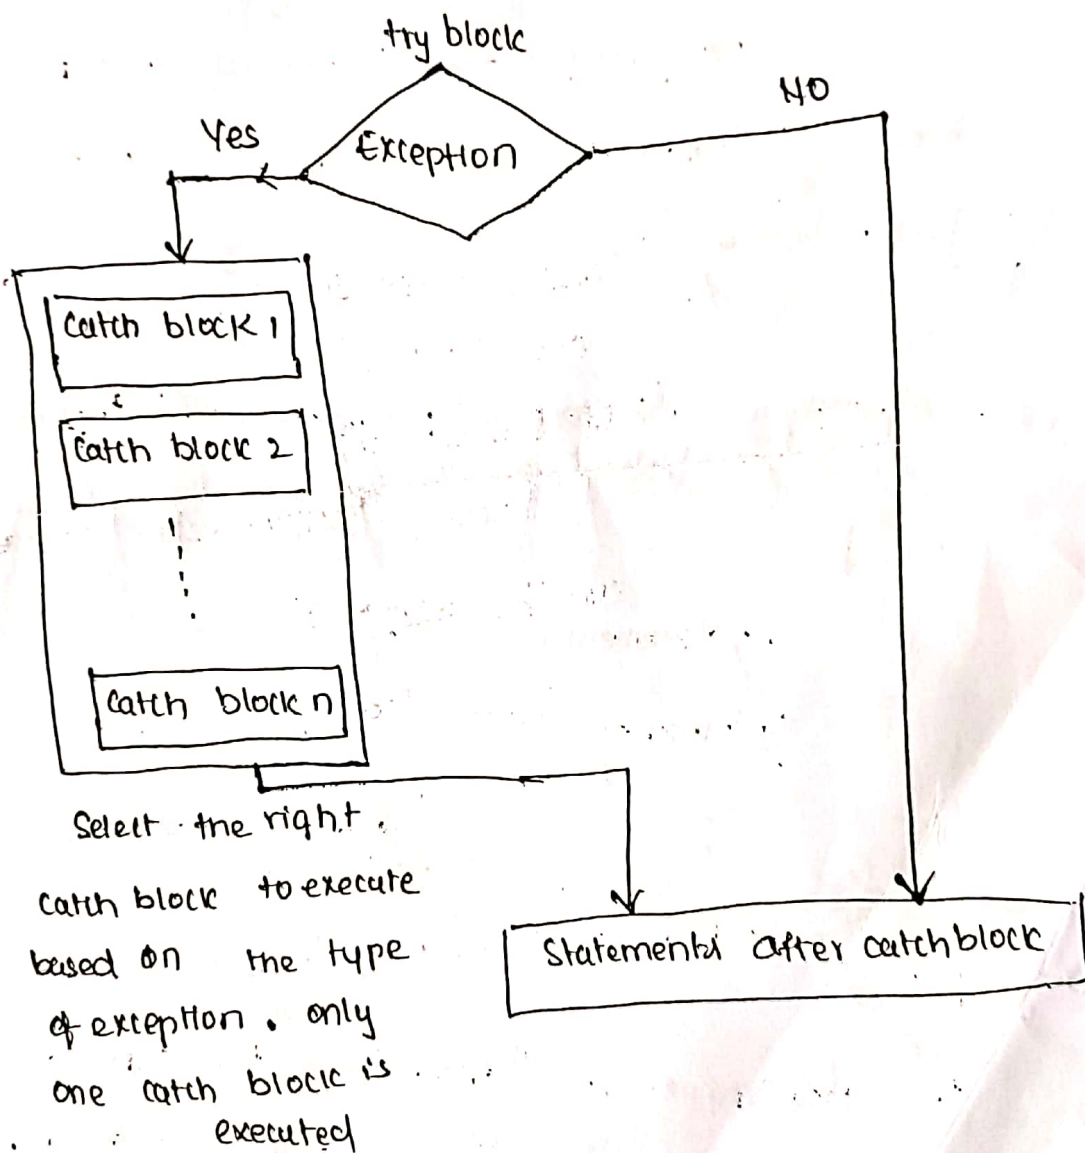 try block
NO
Yes
Exception
Catch block 1
Catch block 2
Catch block n
Select the right.
catch block to execute
based on the type
of exception. only
one catch block is
executed
Statements after catch block